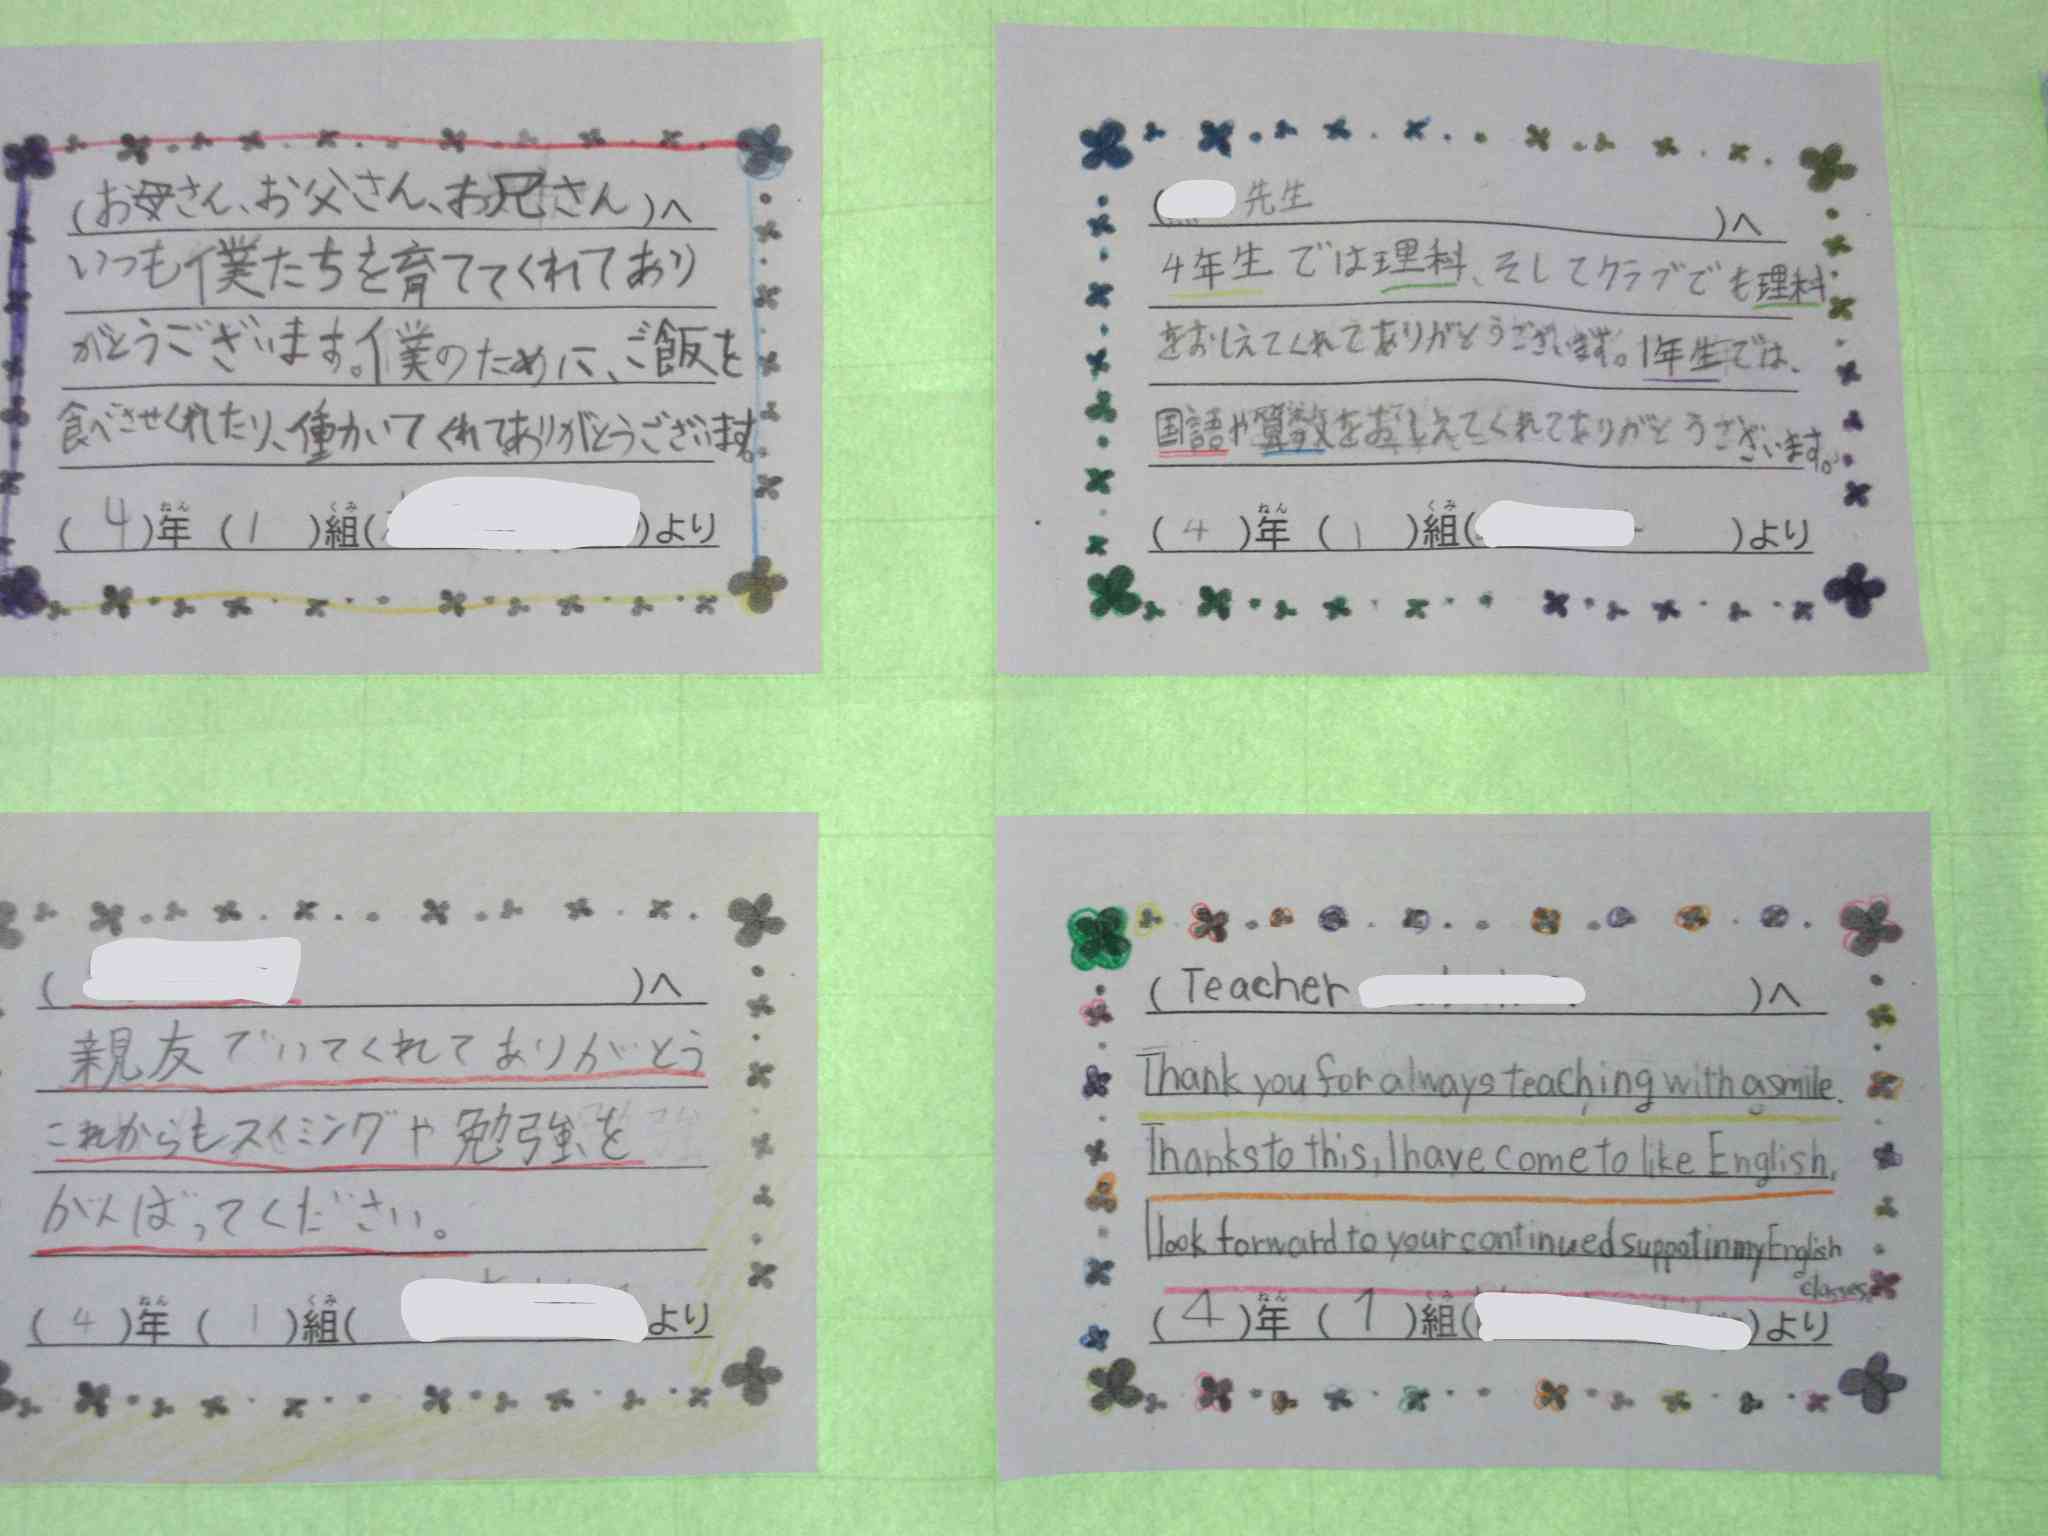 (お母さん、お父さん、お兄さん)へ
いつも僕たちを育ててくれてあり
がとうございます。僕のために、ご飯を
食べさせくれたり、働かいてくれてありがとうございます。
(4)年(1)組( )より
ねん くみ
( 先生 )へ
4年生では理科、そしてクラブでも理科
をおしえてくれてありがとうございます。1年生では、
国語や算数をおしえてくれてありがとうございます。
(4)年(1)組( )より
ねん くみ
( )へ
親友でいてくれてありがとう
これからもスイミングや勉強を
がんばってください。
(4)年(1)組( より
ねん くみ
(Teacher )へ
Thank you for always teaching with a smile.
Thanks to this, I have come to like English.
I look forward to your continued suppot in my English
classes.
(4)年(1)組( )より
ねん くみ